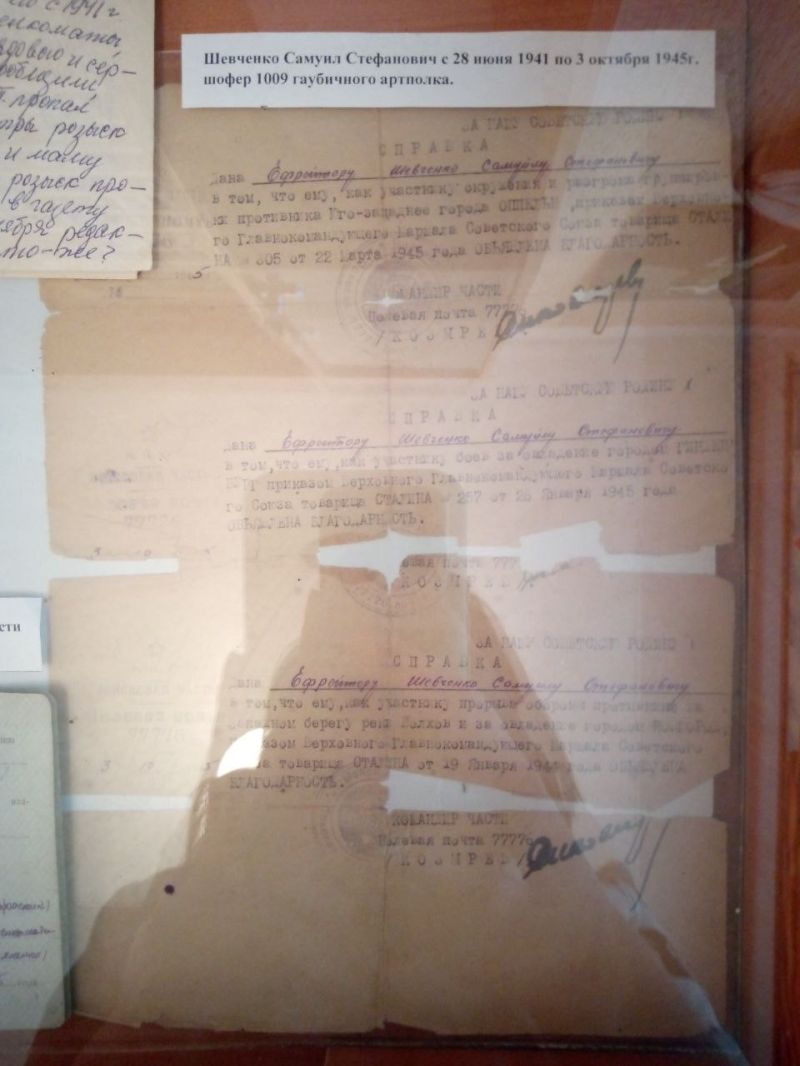 с 1941 г
енкоматы
и сер-
сообщили
пропал
розыск
и машу
розыск про-
в газету
редак-
то-же?
Шевченко Самуил Стефанович с 28 июня 1941 по 3 октября 1945г.
шофер 1009 гаубичного артполка.
ЗА НАШУ СОВЕТСКУЮ РОДИНУ
СПРАВКА
Дана Ефрейтору Шевченко Самуилу Стефановичу
в том, что ему, как участнику окружения и разгрома группиров-
ки противника Юго-западнее города ОППЕЛЬН, приказом Верховно-
го Главнокомандующего Маршала Советского Союза товарища СТАЛИ
НА № 305 от 22 марта 1945 года ОБЪЯВЛЕНА БЛАГОДАРНОСТЬ.
КОМАНДИР ЧАСТИ
Полевая почта 77776
/КОЗЫРЕВ/
ЗА НАШУ СОВЕТСКУЮ РОДИНУ!
СПРАВКА
Дана Ефрейтору Шевченко Самуилу Стефановичу
в том, что ему, как участнику боев за овладение городом ГИНДЕН
БУРГ приказом Верховного Главнокомандующего Маршала Советско
го Союза товарища СТАЛИНА № 257 от 26 Января 1945 года
ОБЪЯВЛЕНА БЛАГОДАРНОСТЬ.
3 10 5
овая почта 777
КОЗЫРЕВ
ЗА НАШУ СОВЕТСКУЮ РОДИНУ!
СПРАВКА
Дана Ефрейтору Шевченко Самуилу Стефановичу
в том, что ему, как участнику прорыва обороны противника на
западном берегу реки Волхов и за овладение городом НОВГОРОД,
казом Верховного Главнокомандующего Маршала Советского
за товарища СТАЛИНА от 19 Января 1944 года ОБЪЯВЛЕНА
БЛАГОДАРНОСТЬ.
3 10
КОМАНДИР ЧАСТИ
Полевая почта 77776
/КОЗЫРЕВ/
сти